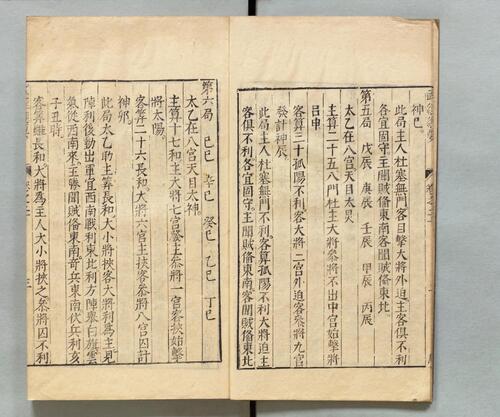 神巳
此局主人杜塞無門客目擊大將外迫主客俱不利
各宜固守主關賊偹東南客關賊偹東北
第五局 戊辰 庚辰 壬辰 甲辰 丙辰
太乙在八宫天目太炅
主算二十五八門杜主大將叅將不出中宫始擊將
吕申
客算三十孤陽不利客大將二宫外迫客叅將九宫
發計神辰
此局主人杜塞無門不利客算孤陽不利大將迫主
客俱不利各宜固守主關賊偹東南客關賊偹東北
第六局 己巳 辛巳 癸巳 乙巳 丁巳
太乙在八宫天目太神
主算十七和主大將七宫發主叅將一宫客挾始擊
將太陽
客算二十六長和大將六宫主挾客叅將八宫囚計
神卯
此局太乙助主筭長和大小將挾客大將利為主見
陣利後動出軍宜西南戰利東北利方陣舉白旗雲
氣從西南來主勝關賊偹東南竒兵東南伏兵利亥
子丑時
客算雖長和大將為主人大小將挾之叅將囚不利